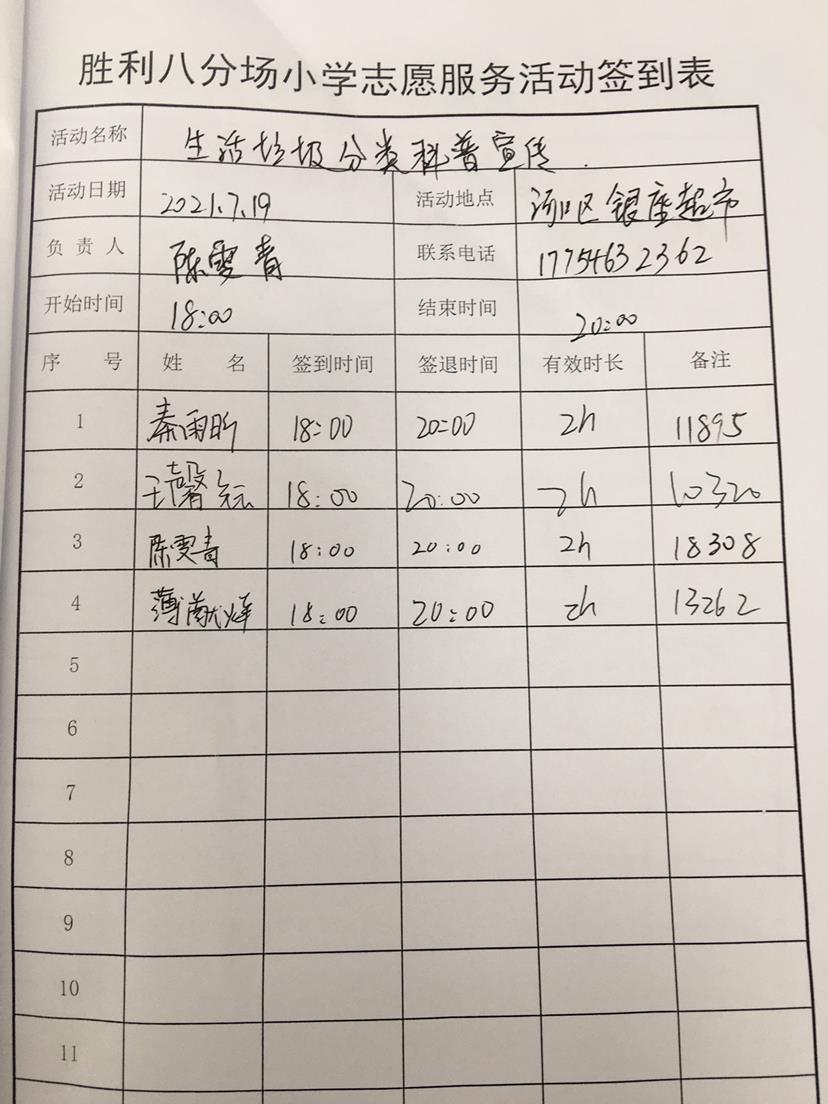 胜利八分场小学志愿服务活动签到表
活动名称 生活垃圾分类科普宣传.
活动日期 2021.7.19 活动地点 河口区银座超市
负责人 陈雯青 联系电话 17754632362
开始时间 18:00 结束时间 20:00
序号 姓名 签到时间 签退时间 有效时长 备注
1 秦雨昕 18:00 20:00 2h 11895
2 王馨 18:00 20:00 2h 10320
3 陈雯青 18:00 20:00 2h 18308
4 薄 18:00 20:00 2h 13262
5
6
7
8
9
10
11